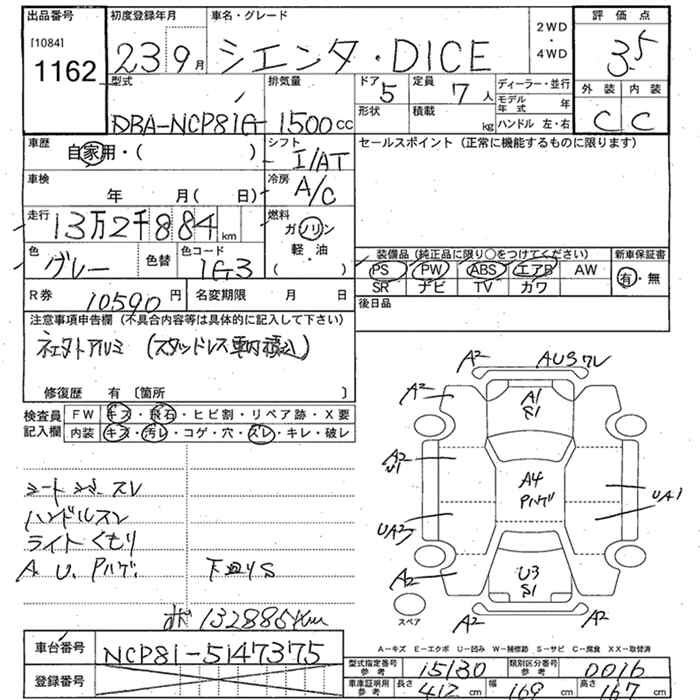 出品番号 初度登録年月 車名・グレード 2WD・4WD 評価点
[1084] 1162
23 9月 シエンタ・DICE 3.5
型式 排気量 ドア 5 定員 7人 ディーラー・並行 外装 内装
形状 積載 kg モデル年式 年
DBA-NCP81G 1500cc ハンドル 左・右 C C
車歴 自家用・( ) シフト I/AT セールスポイント (正常に機能するものに限ります)
車検 年 月( 日) 冷房 A/C
走行 13万2千884km 燃料 ガソリン・軽・油 ( )
色 グレー 色替 色コード 1G3
装備品 (純正品に限り○をつけてください) 新車保証書
PS PW ABS エアB AW 有・無
SR ナビ TV カワ
R券 10590円 名変期限 月 日 後日品
注意事項申告欄 (不具合内容等は具体的に記入して下さい)
修復歴 有 〔箇所 〕
検査員記入欄 FW キズ・飛石・ヒビ割・リペア跡・X要
内装 キズ・汚レ・コゲ・穴・スレ・キレ・破レ
A2 AUSワレ
A2 A1 S1 A2
A2 U1 A4 Pハゲ UA1
UA3
A2 U3 S1 A2
A2 A2
スペア
ハンドルスレ
ライトくもり
A U. Pハゲ. 下廻りS
132885km
A－キズ E－エクボ U－凹み W－補修跡 S－サビ C－腐食 XX－取替済
車台番号 NCP81-5147375
登録番号
型式指定番号 参考 15130 類別区分番号 参考 0016
車庫証明用 参考 長さ 412cm 幅 169cm 高さ 167cm